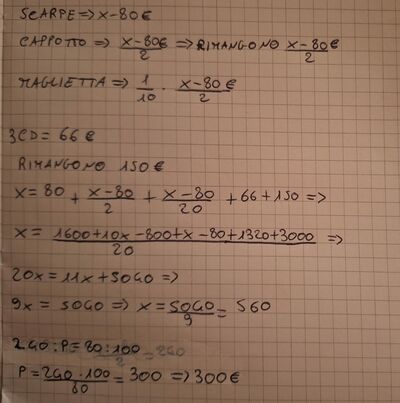 SCARPE => x-80€
CAPPOTTO => x-80€/2 => RIMANGONO x-80€/2
MAGLIETTA => 1/10 · x-80€/2
3CD = 66€
RIMANGONO 150€
x = 80 + x-80/2 + x-80/20 + 66 + 150 =>
x = 1600+10x-800+x-80+1320+3000/20 =>
20x = 11x + 5040 =>
9x = 5040 => x = 5040/9 = 560
240 : P = 80 : 100
P = 240 · 100/80 = 300 => 300€